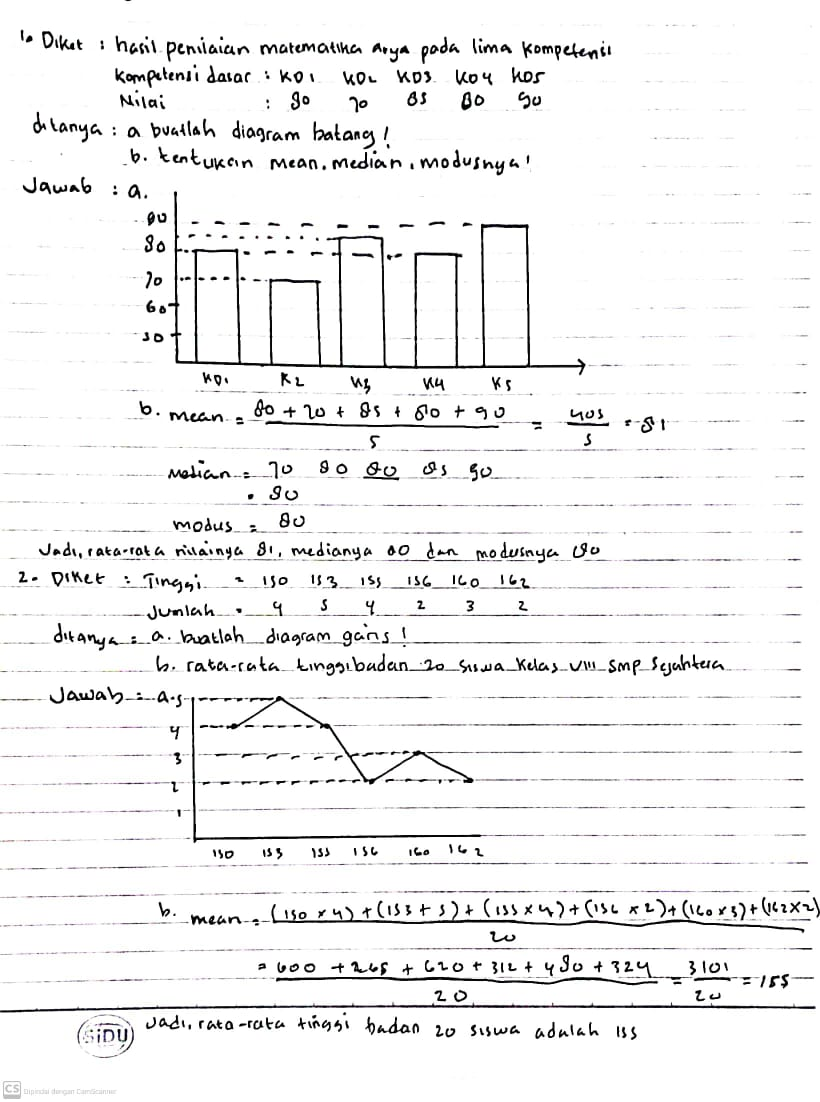 1. Diket : hasil penilaian matematika arya pada lima kompetensi
Kompetensi dasar : KD1 KD2 KD3 KD4 KD5
Nilai : 80 70 85 80 90
ditanya : a buatlah diagram batang!
b. tentukan mean, median, modusnya!
Jawab : a.
90
80
70
60
50
KD1 K2 K3 K4 K5
b. mean = 80 + 70 + 85 + 80 + 90 / 5 = 405 / 5 = 81
Median = 70 80 80 85 90
= 80
modus = 80
Jadi, rata-rata nilainya 81, medianya 80 dan modusnya 80
2. Diket : Tinggi = 150 153 155 156 160 162
Jumlah = 4 5 4 2 3 2
ditanya = a. buatlah diagram garis!
b. rata-rata tinggi badan 20 siswa kelas VIII SMP Sejahtera
Jawab = a. 5
4
3
2
1
150 153 155 156 160 162
b. mean = (150 x 4) + (153 + 5) + (155 x 4) + (156 x 2) + (160 x 3) + (162 x 2) / 20
= 600 + 265 + 620 + 312 + 480 + 324 / 20 = 3101 / 20 = 155
Jadi, rata-rata tinggi badan 20 siswa adalah 155
SiDU
CS Dipindai dengan CamScanner